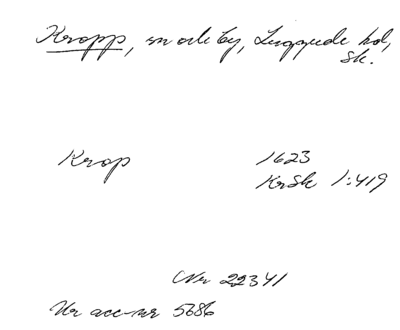 Kropp, sn och by, Luggude hd,
Sk.
Krop 1623
KrSk 1:419
Nr 22341
Ur acc-nr 5686